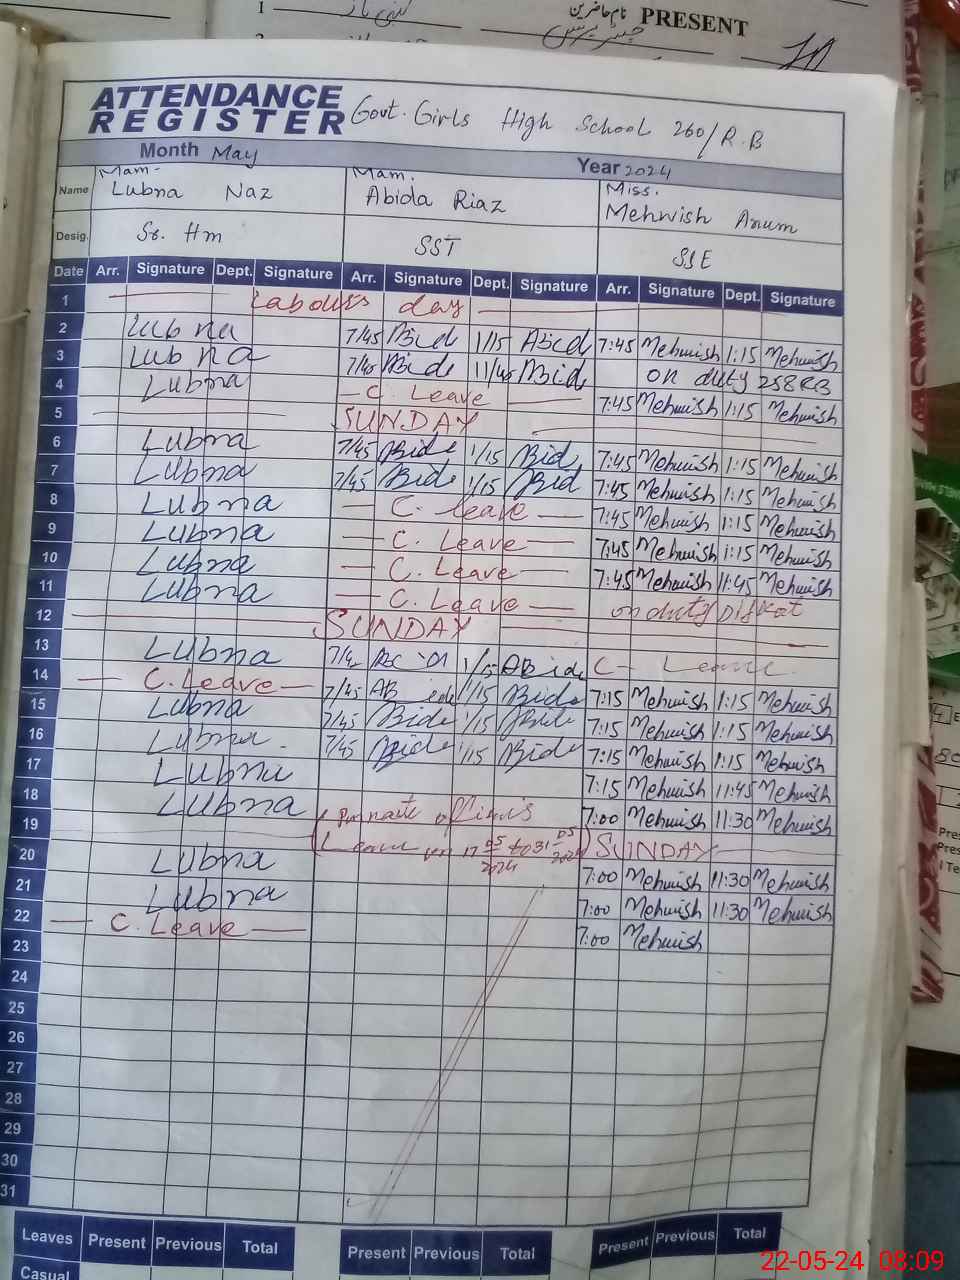 1
نام حاضرین PRESENT
ATTENDANCE
REGISTER Govt. Girls High School 260/R.B
Month May Year 2024
Name Mam. Lubna Naz Mam. Abida Riaz Miss. Mehwish Anum
Desig. Sr. Hm SST SSE
Date Arr. Signature Dept. Signature Arr. Signature Dept. Signature Arr. Signature Dept. Signature
1 Labours day
2 Lubna 7/45 Abid 1/15 Abid 7:45 Mehwish 1:15 Mehwish
3 Lubna 7/45 Abid 11/45 Abid on duty 258RB
4 Lubna C. Leave 7:45 Mehwish 1:15 Mehwish
5 SUNDAY
6 Lubna 7/45 Abide 1/15 Abid 7:45 Mehwish 1:15 Mehwish
7 Lubna 7/45 Abid 1/15 Abid 7:45 Mehwish 1:15 Mehwish
8 Lubna C. leave 7:45 Mehwish 1:15 Mehwish
9 Lubna C. Leave 7:45 Mehwish 1:15 Mehwish
10 Lubna C. Leave 7:45 Mehwish 11:45 Mehwish
11 Lubna C. Leave on duty
12 SUNDAY
13 Lubna 1/15 ABide C- Leave
14 C. Leave 7/45 1/15 Abide 7:15 Mehwish 1:15 Mehwish
15 Lubna 7/45 Abide 1/15 Abide 7:15 Mehwish 1:15 Mehwish
16 Lubna 7/45 Abide 1/15 Abide 7:15 Mehwish 1:15 Mehwish
17 Lubna 7:15 Mehwish 11:45 Mehwish
18 Lubna 7:00 Mehwish 11:30 Mehwish
19 Leave 17 05/2024 to 31 05/2024 SUNDAY
20 Lubna 7:00 Mehwish 11:30 Mehwish
21 Lubna 7:00 Mehwish 11:30 Mehwish
22 C. Leave 7:00 Mehwish
23
24
25
26
27
28
29
30
31
Leaves Present Previous Total Present Previous Total Present Previous Total
Casual
22-05-24 08:09